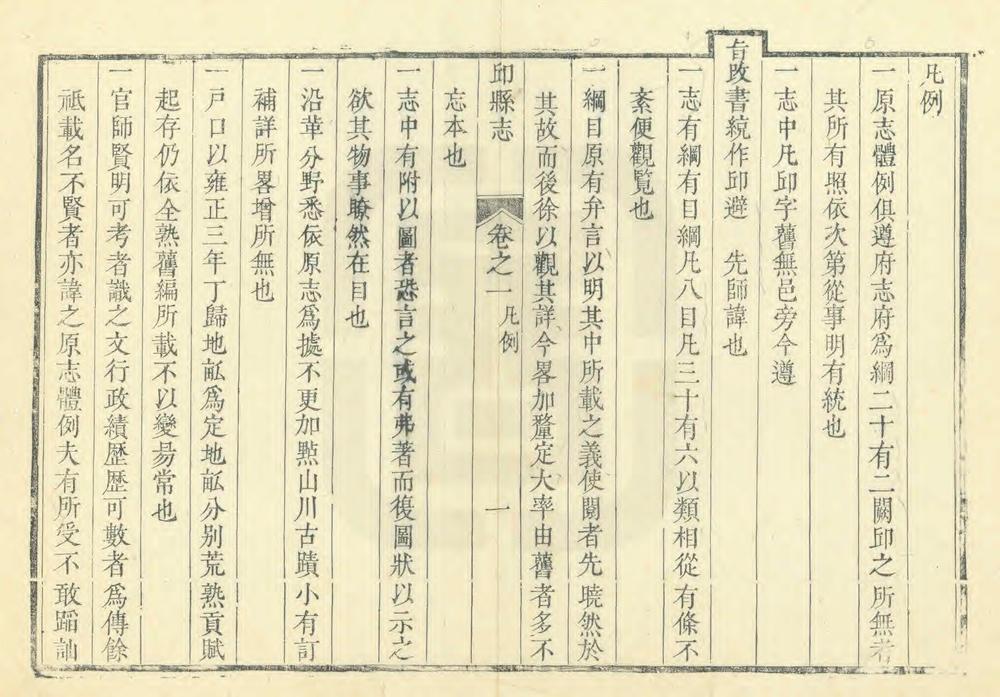 凡例
一原志體例俱遵府志府爲綱二十有二闕邱之所無者
其所有照依次第從事明有統也
一志中凡邱字舊無邑旁今遵
旨改書統作邱避 先師諱也
一志有綱有目綱凡八目凡三十有六以類相從有條不
紊便觀覧也
一綱目原有弁言以明其中所載之義使閱者先曉然於
其故而後徐以觀其詳今畧加釐定大率由舊者多不
邱縣志 卷之一 凡例 一
忘本也
一志中有附以圖者恐言之或有弗著而復圖狀以示之
欲其物事瞭然在目也
一沿革分野悉依原志爲據不更加㸃山川古蹟小有訂
補詳所畧增所無也
一戸口以雍正三年丁歸地畝爲定地畝分别荒熟貢賦
起存仍依全熟舊編所載不以變易常也
一官師賢明可考者識之文行政績歴歴可數者爲傳餘
祗載名不賢者亦諱之原志體例夫有所受不敢蹈訕